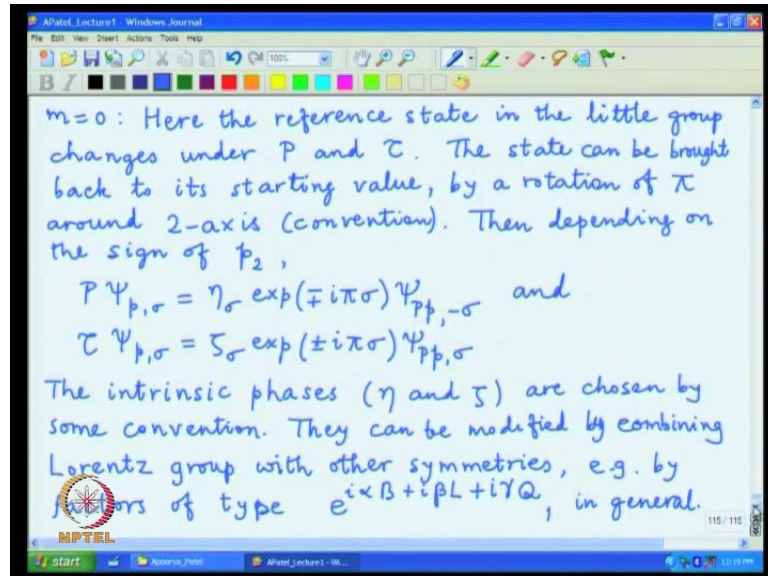 APatel_Lecture1 - Windows Journal
File Edit View Insert Actions Tools Help
100%
B I
m=0 : Here the reference state in the little group
changes under P and τ. The state can be brought
back to its starting value, by a rotation of π
around 2-axis (convention). Then depending on
the sign of p₂,
P Ψ_{p,σ} = η_σ exp(∓iπσ) Ψ_{Pp,-σ} and
τ Ψ_{p,σ} = ζ_σ exp(±iπσ) Ψ_{Pp,σ}
The intrinsic phases (η and ζ) are chosen by
some convention. They can be modified by combining
Lorentz group with other symmetries, e.g. by
factors of type e^{iαB+iβL+iγQ}, in general.
NPTEL
115 / 115
start Apoorva_Patel APatel_Lecture1 - Wi... 11:19 PM